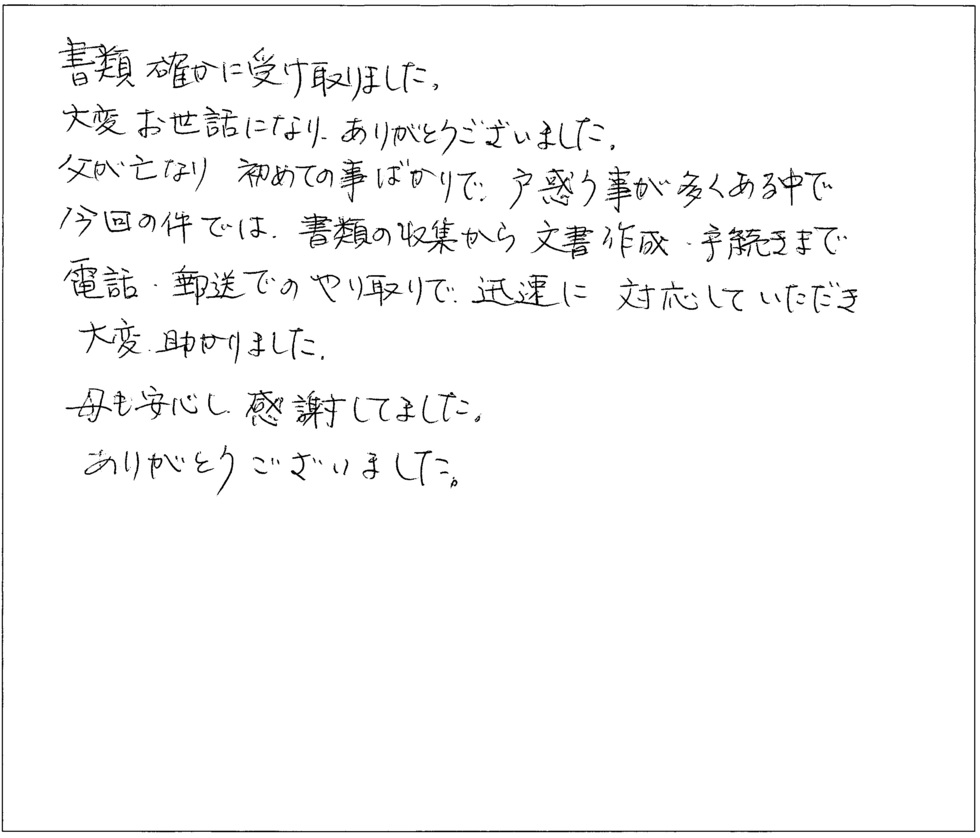 書類 確かに受け取りました。
大変 お世話になり、ありがとうございました。
父が亡なり 初めての事ばかりで、戸惑う事が多くある中で
今回の件では、書類の収集から 文書作成・手続きまで
電話・郵送でのやり取りで、迅速に 対応していただき
大変、助かりました。
母も安心し、感謝してました。
ありがとうございました。